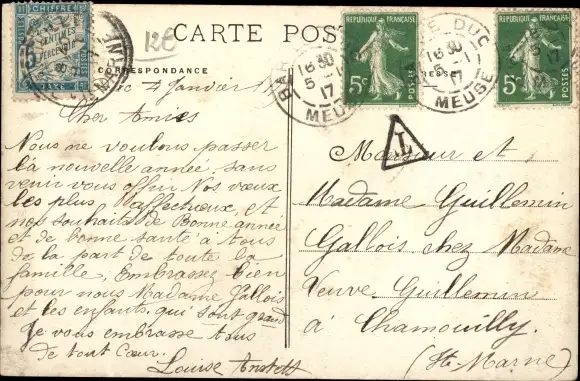 CHIFFRE
5
CENTIMES
À PERCEVOIR
TAXE
120
CARTE POSTALE
CORRESPONDANCE
ADRESSE
RÉPUBLIQUE FRANÇAISE
5c
POSTES
RÉPUBLIQUE FRANÇAISE
5c
POSTES
BAR-LE-DUC
16 30
5-1
17
MEUSE
BAR-LE-DUC
16 30
5-1
17
MEUSE
T
4 Janvier
Cher Amies
Nous ne voulons passer
la nouvelle année sans
venir vous offrir Nos vœux
les plus affectueux, et
nos souhaits de Bonne année
et de bonne santé à tous
de la part de toute la
famille, Embrassez bien
pour nous Madame Gallois
et les enfants, qui sont grand
Je vous embrasse tous
de tout Cœur.
Louise
Monsieur et
Madame Guillemin
Gallois chez Madame
Veuve Guillemin
à Chamouilly.
(Hte Marne)